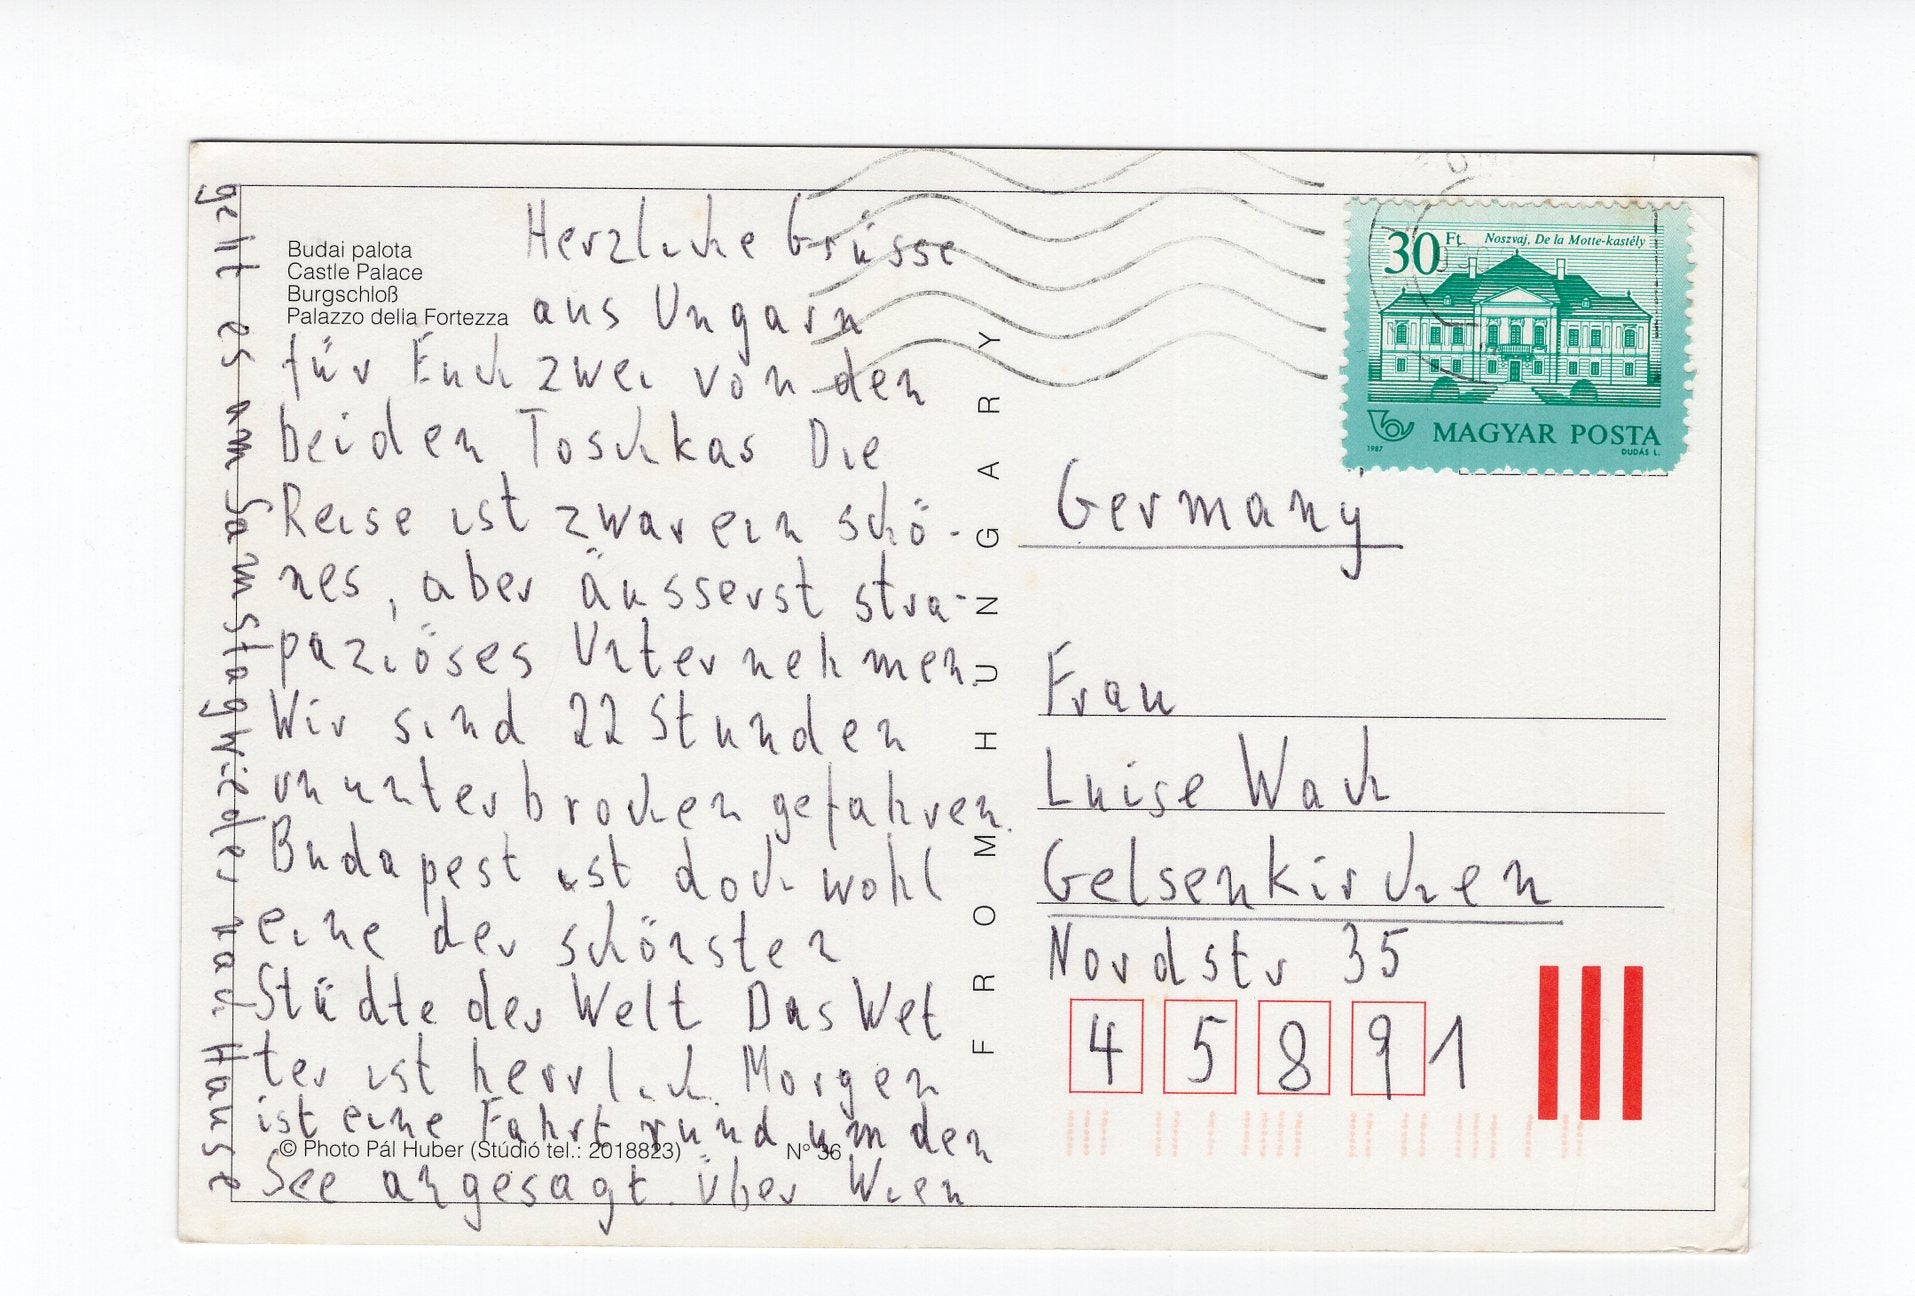 Budai palota
Castle Palace
Burgschloß
Palazzo della Fortezza
Herzliche Grüsse
aus Ungarn
für Euch zwei von den
beiden Toschkas Die
Reise ist zwar ein schö-
nes, aber äusserst stra-
paziöses Unternehmen.
Wir sind 22 Stunden
ununterbrochen gefahren.
Budapest ist doch wohl
eine der schönsten
Städte der Welt Das Wet
ter ist herrlich. Morgen
ist eine Fahrt rund um den
See angesagt. Über Wien
geht es am Samstag wieder nach Hause
© Photo Pál Huber (Stúdió tel.: 2018823) Nº 36
FROM HUNGARY
30 Ft Noszvaj, De la Motte-kastély
MAGYAR POSTA
1987 DUDÁS L.
Germany
Frau
Luise Wach
Gelsenkirchen
Nordstr 35
45891